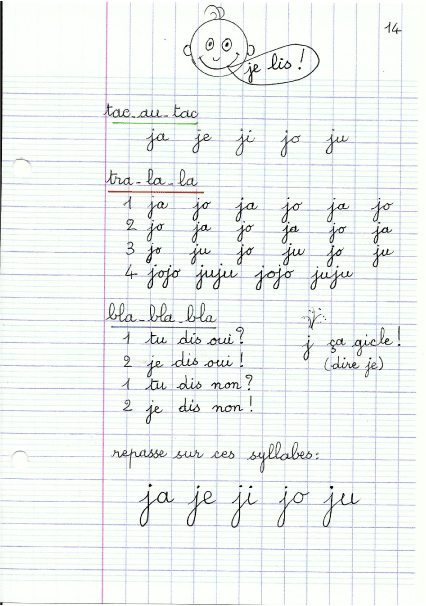 14
je lis !
tac-au-tac
ja je ji jo ju
tra-la-la
1 ja jo ja jo ja jo
2 jo ja jo ja jo ja
3 jo ju jo ju jo ju
4 jojo juju jojo juju
bla-bla-bla
1 tu dis oui ?
2 je dis oui !
1 tu dis non ?
2 je dis non !
j ça gicle !
(dire je)
repasse sur ces syllabes :
ja je ji jo ju